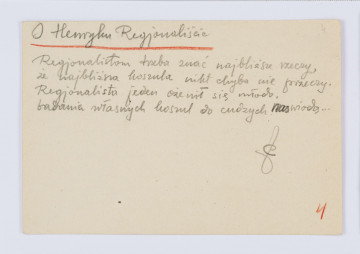 O Henryku Regjonaliście
Regjonalistom trzeba znać najbliższe rzeczy,
że najbliższa koszula nikt chyba nie przeczy.
Regjonalista jeden ożenił się młodo.
badania własnych koszul do cudzych nas wiodą...
4